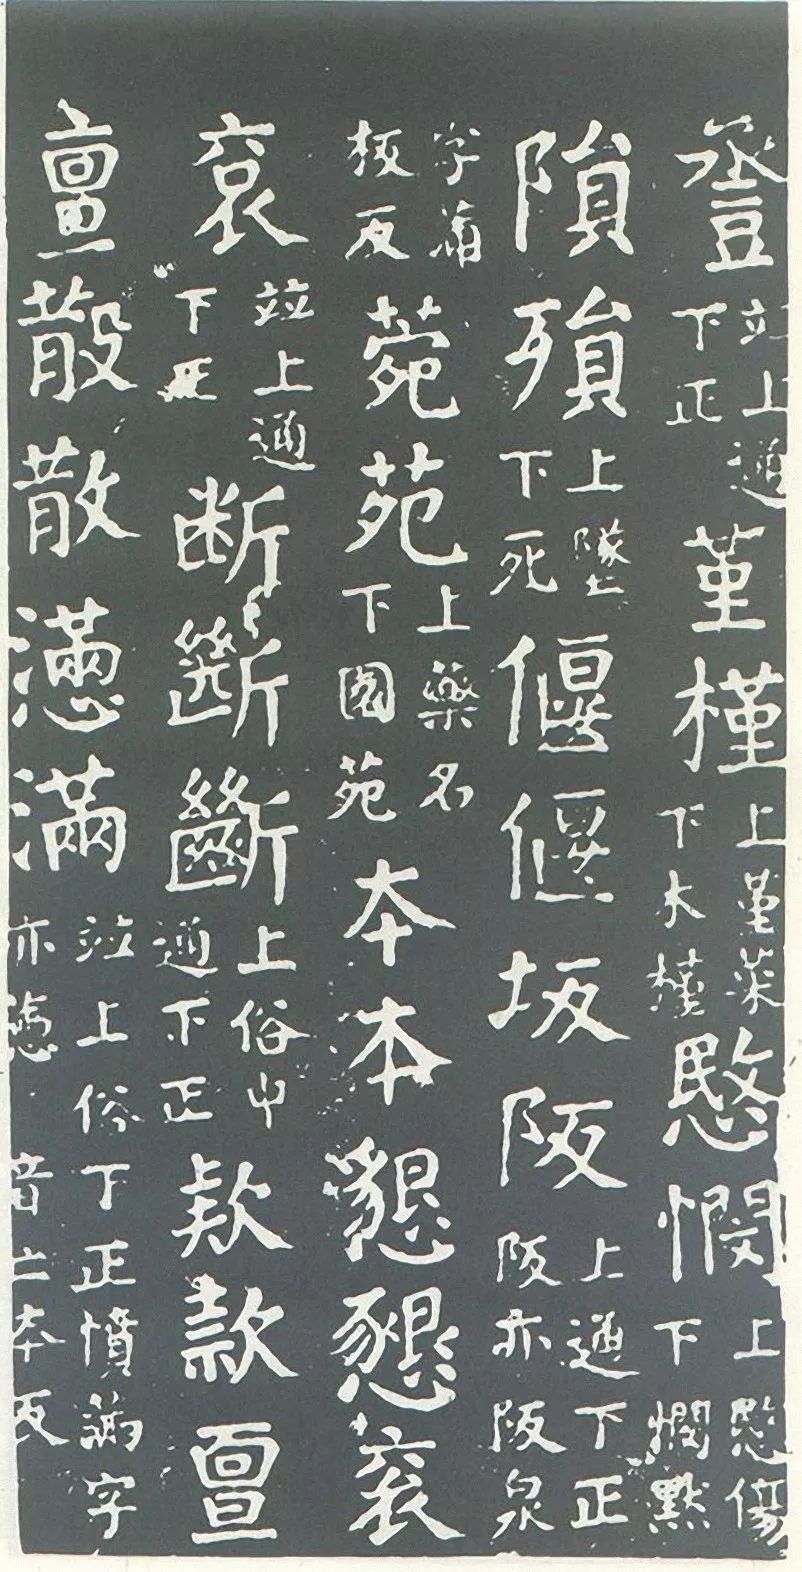 𧯷竝上通下正堇槿上堇菜下木槿愍憫上愍傷下憫默
隕殞上墜下死偃偃坂阪上通下正阪亦阪泉
字蒲板反菀苑上藥名下園苑夲本懇懇衮
衮竝上通下正断斷上俗中通下正欵款亶
亶散散懣滿竝上俗下正憤滿字亦懣音亡本反